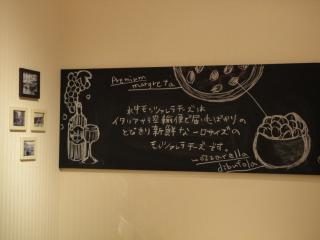 Premium
margreta
水牛モッツァレラチーズは
イタリアから空輸便で届いたばかりの
とびきり新鮮な一口サイズの
モッツァレラチーズです。
mozzarella
di bufala